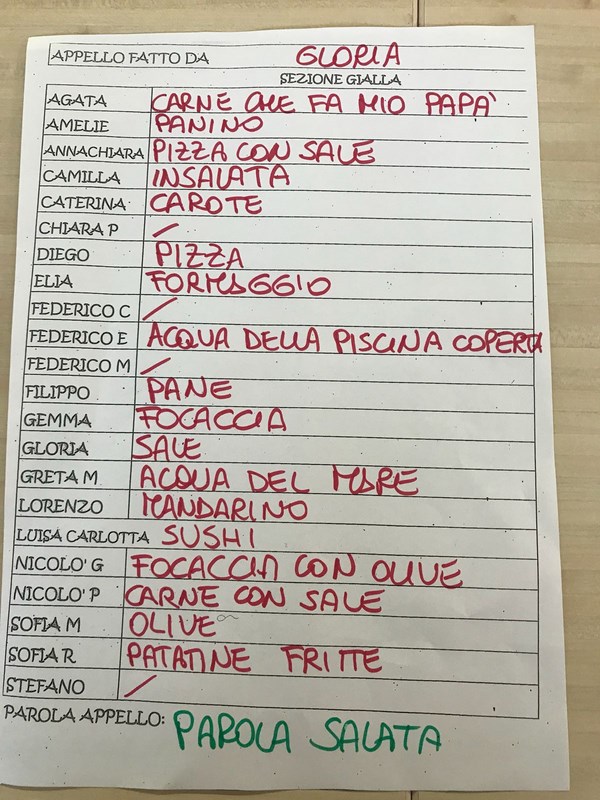 APPELLO FATTO DA GLORIA
SEZIONE GIALLA
AGATA CARNE CHE FA MIO PAPA'
AMELIE PANINO
ANNACHIARA PIZZA CON SALE
CAMILLA INSALATA
CATERINA CAROTE
CHIARA P /
DIEGO PIZZA
ELIA FORMAGGIO
FEDERICO C /
FEDERICO E ACQUA DELLA PISCINA COPERTA
FEDERICO M /
FILIPPO PANE
GEMMA FOCACCIA
GLORIA SALE
GRETA M ACQUA DEL MARE
LORENZO MANDARINO
LUISA CARLOTTA SUSHI
NICOLO' G FOCACCIA CON OLIVE
NICOLO' P CARNE CON SALE
SOFIA M OLIVE
SOFIA R PATATINE FRITTE
STEFANO /
PAROLA APPELLO: PAROLA SALATA